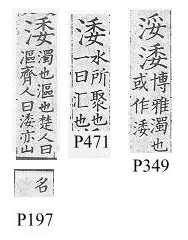 涹
濁也漚也楚人曰
漚齊人曰涹亦山
名
P197
涹
水所聚也
一曰汇也
P471
浽涹
博雅濁也
或作涹
P349